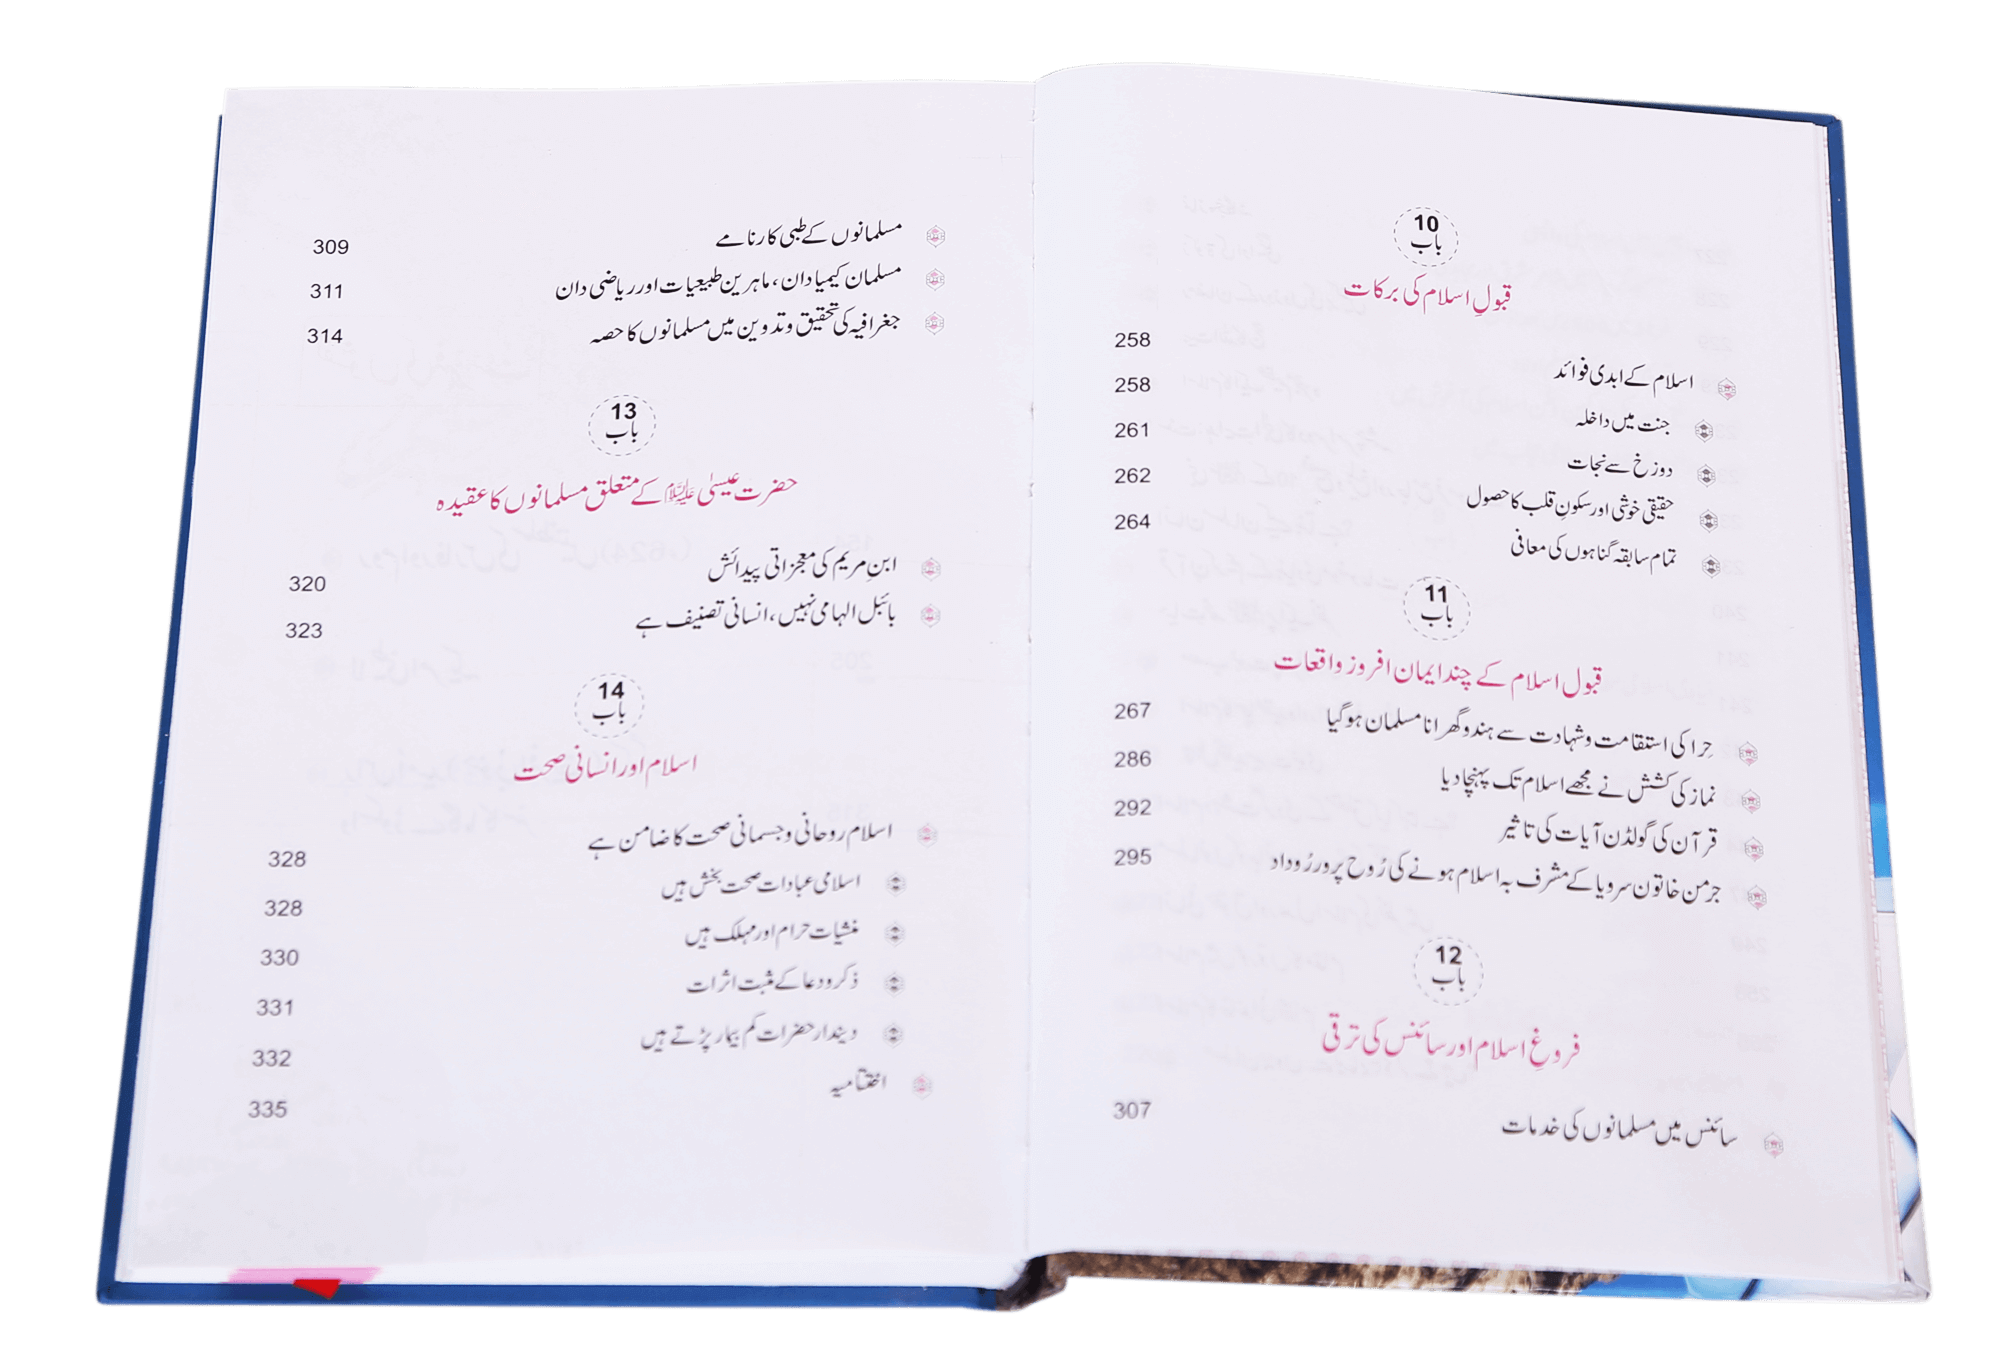 10
باب
قبولِ اسلام کی برکات
اسلام کے ابدی فوائد 258
جنت میں داخلہ 258
دوزخ سے نجات 261
حقیقی خوشی اور سکونِ قلب کا حصول 262
تمام سابقہ گناہوں کی معافی 264
11
باب
قبول اسلام کے چند ایمان افروز واقعات
حِرا کی استقامت و شہادت سے ہندو گھرانا مسلمان ہوگیا 267
نماز کی کشش نے مجھے اسلام تک پہنچا دیا 286
قرآن کی گولڈن آیات کی تاثیر 292
جرمن خاتون سرویا کے مشرف بہ اسلام ہونے کی رُوح پرور رُوداد 295
12
باب
فروغِ اسلام اور سائنس کی ترقی
سائنس میں مسلمانوں کی خدمات 307
مسلمانوں کے طبی کارنامے 309
مسلمان کیمیا دان، ماہرین طبیعیات اور ریاضی دان 311
جغرافیہ کی تحقیق و تدوین میں مسلمانوں کا حصہ 314
13
باب
حضرت عیسیٰ علیہ السلام کے متعلق مسلمانوں کا عقیدہ
ابنِ مریم کی معجزاتی پیدائش 320
بائبل الہامی نہیں، انسانی تصنیف ہے 323
14
باب
اسلام اور انسانی صحت
اسلام روحانی و جسمانی صحت کا ضامن ہے 328
اسلامی عبادات صحت بخش ہیں 328
منشیات حرام اور مہلک ہیں 330
ذکر و دعا کے مثبت اثرات 331
دیندار حضرات کم بیمار پڑتے ہیں 332
اختتامیہ 335